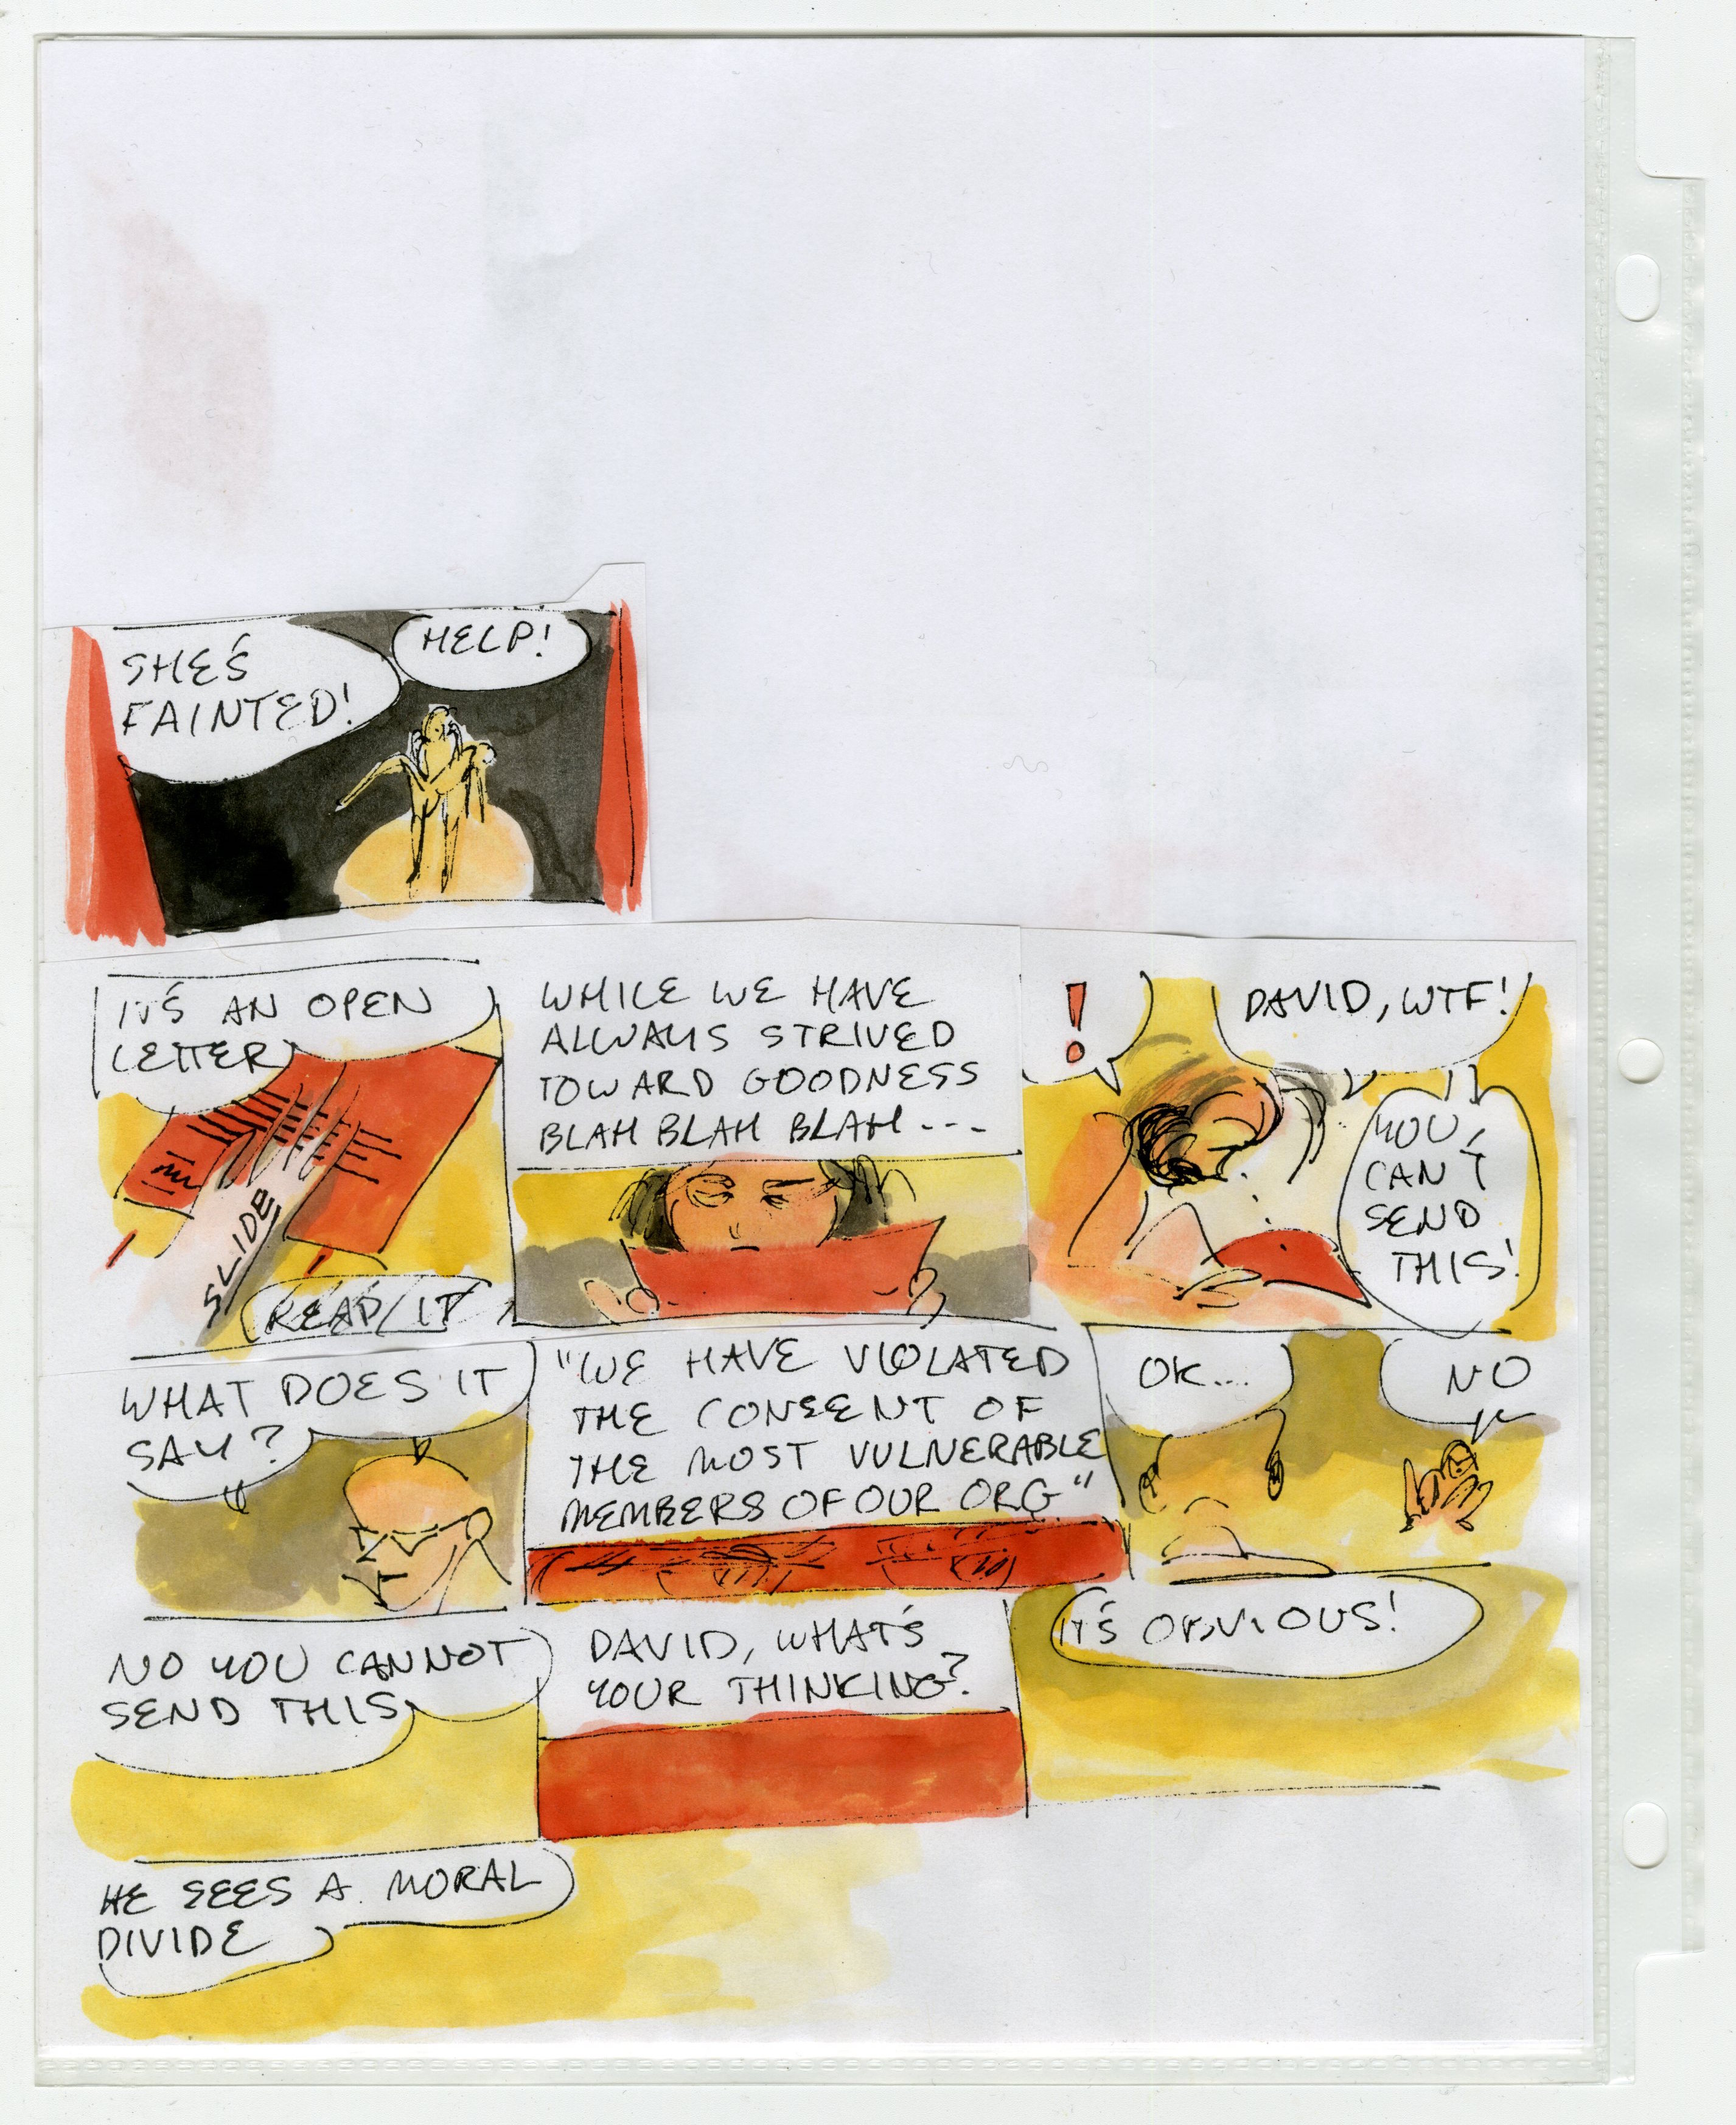 SHE'S
FAINTED!
HELP!
IT'S AN OPEN
LETTER
SLIDE
READ IT
WHILE WE HAVE
ALWAYS STRIVED
TOWARD GOODNESS
BLAH BLAH BLAH---
!
DAVID, WTF!
YOU,
CAN'T
SEND
THIS!
WHAT DOES IT
SAY?
"WE HAVE VIOLATED
THE CONSENT OF
THE MOST VULNERABLE
MEMBERS OF OUR ORG."
OK...
NO
NO YOU CANNOT
SEND THIS
DAVID, WHAT'S
YOUR THINKING?
IT'S OBVIOUS!
HE SEES A MORAL
DIVIDE